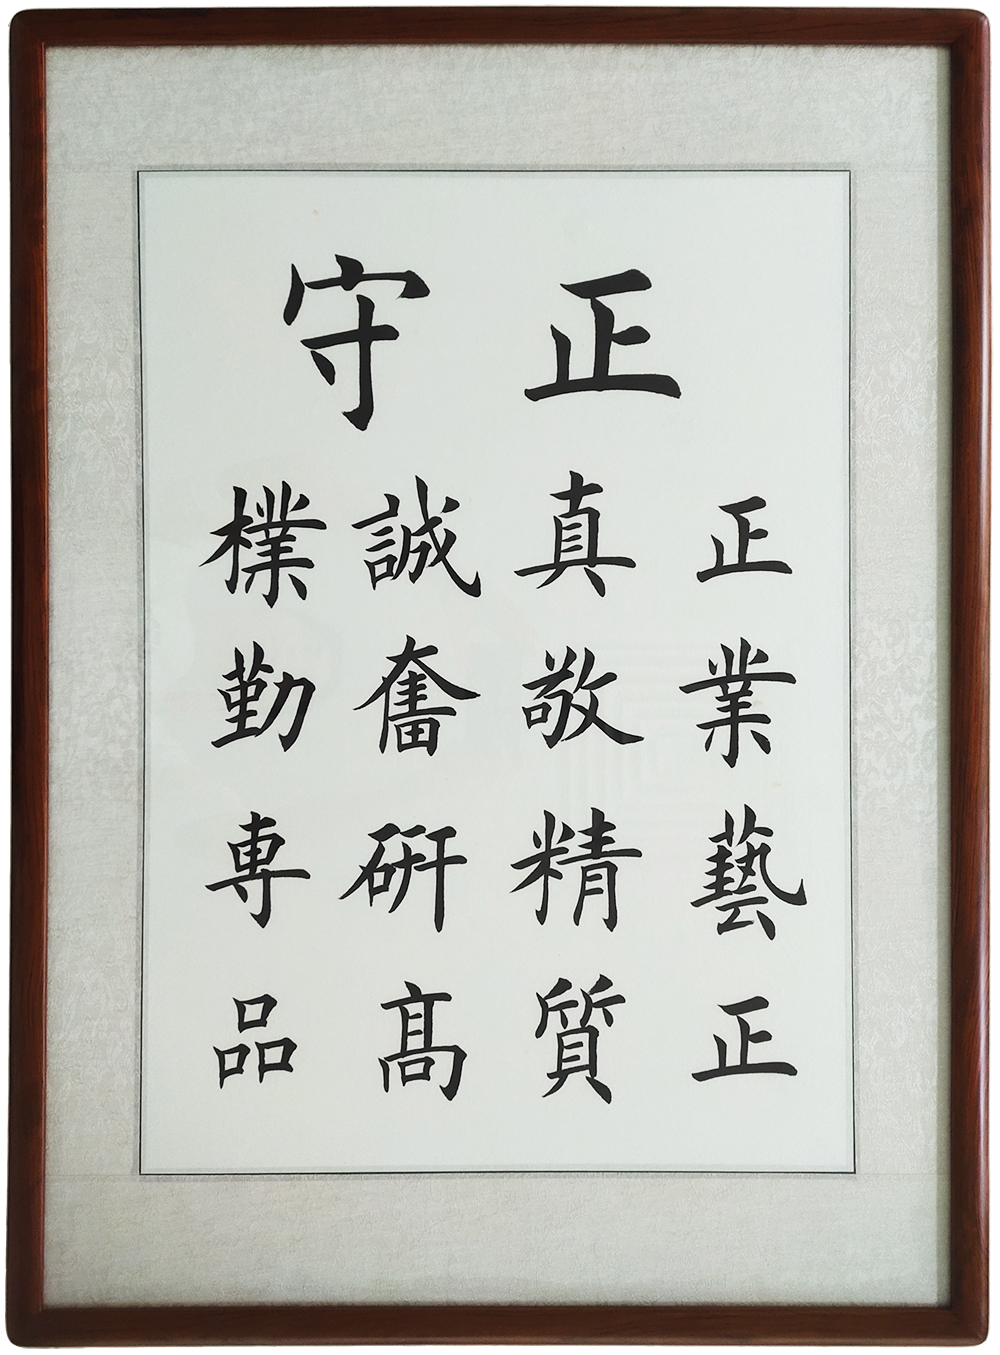 守正
樸誠真正
勤奮敬業
専研精藝
品髙質正